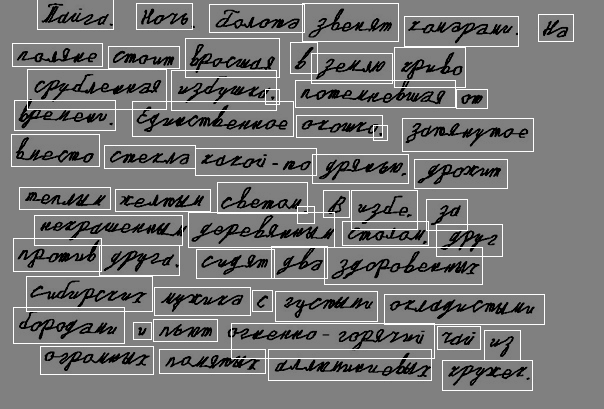 Тайга. Ночь. Болота звенят комарами. На
поляне стоит вросшая в землю криво
срубленная избушка, потемневшая от
времени. Единственное окошко, затянутое
вместо стекла какой-то дрянью, дрожит
теплым желтым светом. В избе, за
некрашенным деревянным столом, друг
против друга, сидят два здоровенных
сибирских мужика с густыми окладистыми
бородами и пьют огненно-горячий чай из
огромных помятых аллюминиевых кружек.